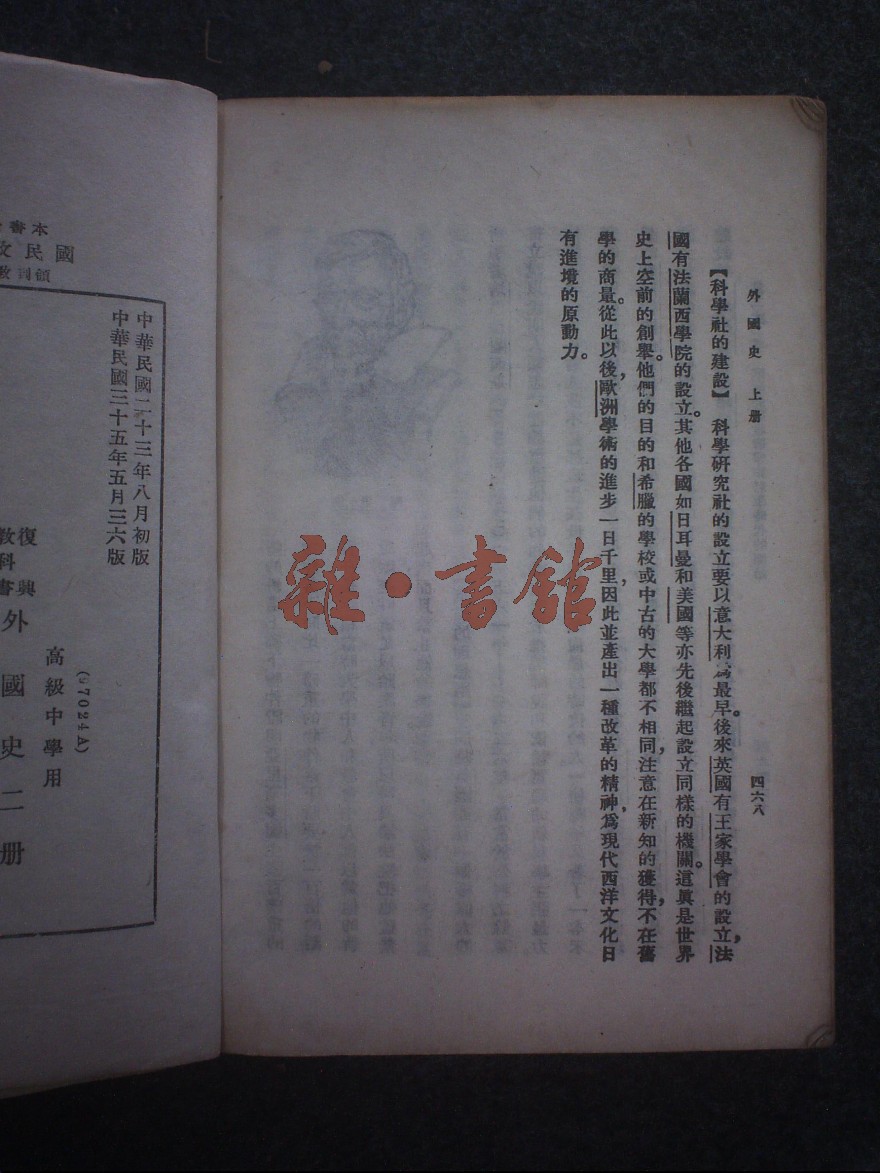 外國史 上册
四六八
【科學社的建設】 科學研究社的設立要以意大利爲最早。後來英國有王家學會的設立，法
國有法蘭西學院的設立。其他各國如日耳曼和美國等亦先後繼起設立同樣的機關。這眞是世界
史上空前的創舉。他們的目的和希臘的學校或中古的大學都不相同，注意在新知的獲得，不在舊
學的商量。從此以後，歐洲學術的進步一日千里，因此並產出一種改革的精神，爲現代西洋文化日
有進境的原動力。
雜·書館
中華民國二十三年八月初版
中華民國三十五年五月三六版
(97024A)
高級中學用
復興
教科書
外國史二册
本書
國民
領到